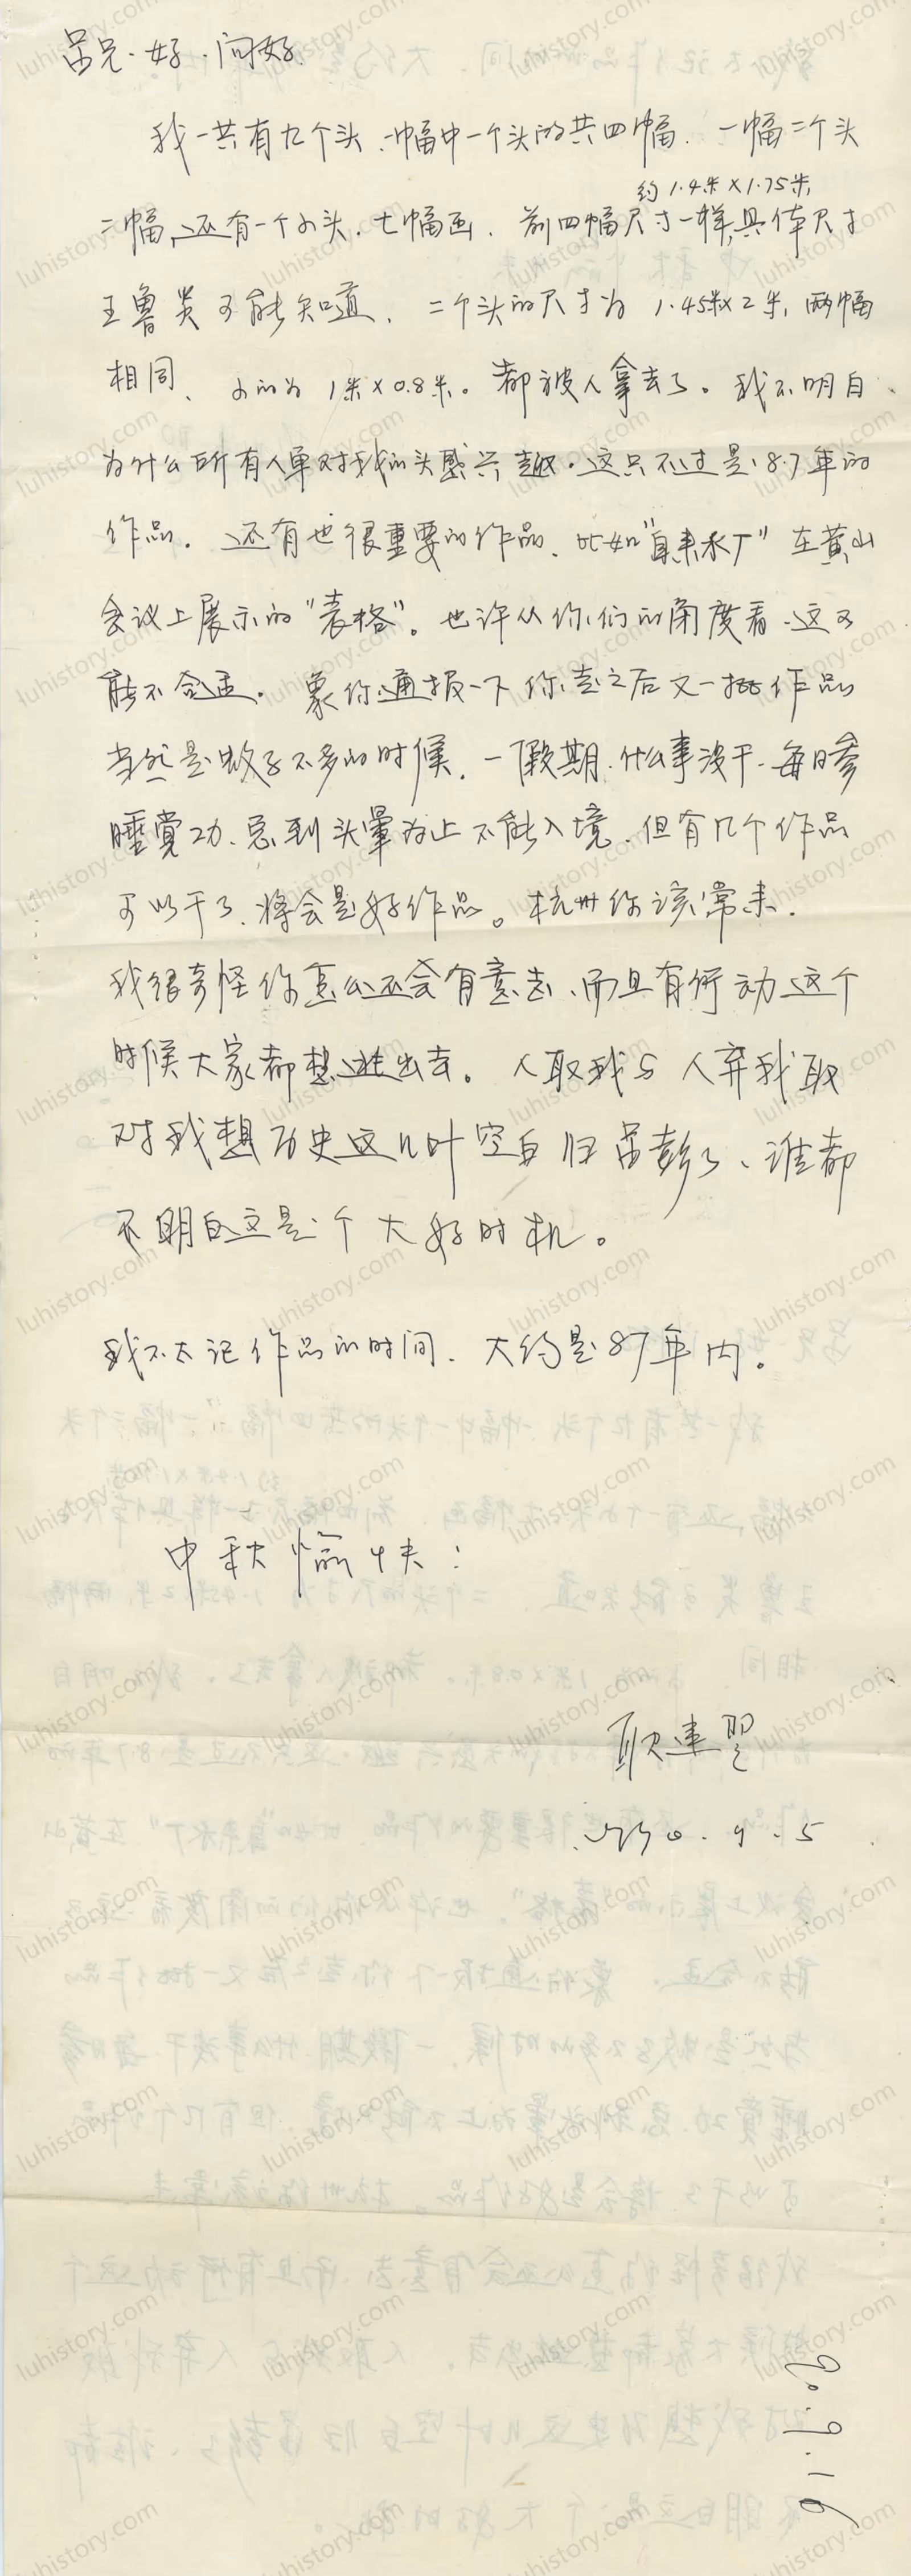 吕兄·好·问好.
我一共有九个头、一幅中一个头的共四幅. 一幅二个头
约1.4米×1.75米,
二幅,还有一个小头. 七幅画. 前四幅尺寸一样,具体尺寸
王鲁炎可能知道. 二个头的尺寸为1.45米×2米, 两幅
相同、小的为1米×0.8米。都被人拿去了。我不明白、
为什么所有人单对我的头感兴趣. 这只不过是87年的
作品. 还有也很重要的作品、比如"自来水厂"在黄山
会议上展示的"表格"。也许从你们的角度看、这可
能不合适. 象你通报一下你走之后又一批作品
当然是数了不多的时候. 一假期.什么事没干.每日参
睡觉功、总到头晕为止不能入境. 但有几个作品
可以干了、将会是好作品。杭州你该常来.
我很奇怪你怎么还会有意志、而且有行动这个
时候大家都想逃出去。人取我与 人弃我取
对我想历史这几叶空白归吕彭了、谁都
不明白这是个大好时机。
我不太记作品的时间. 大约是87年内。
中秋愉快:
耿建翌
90.9.16